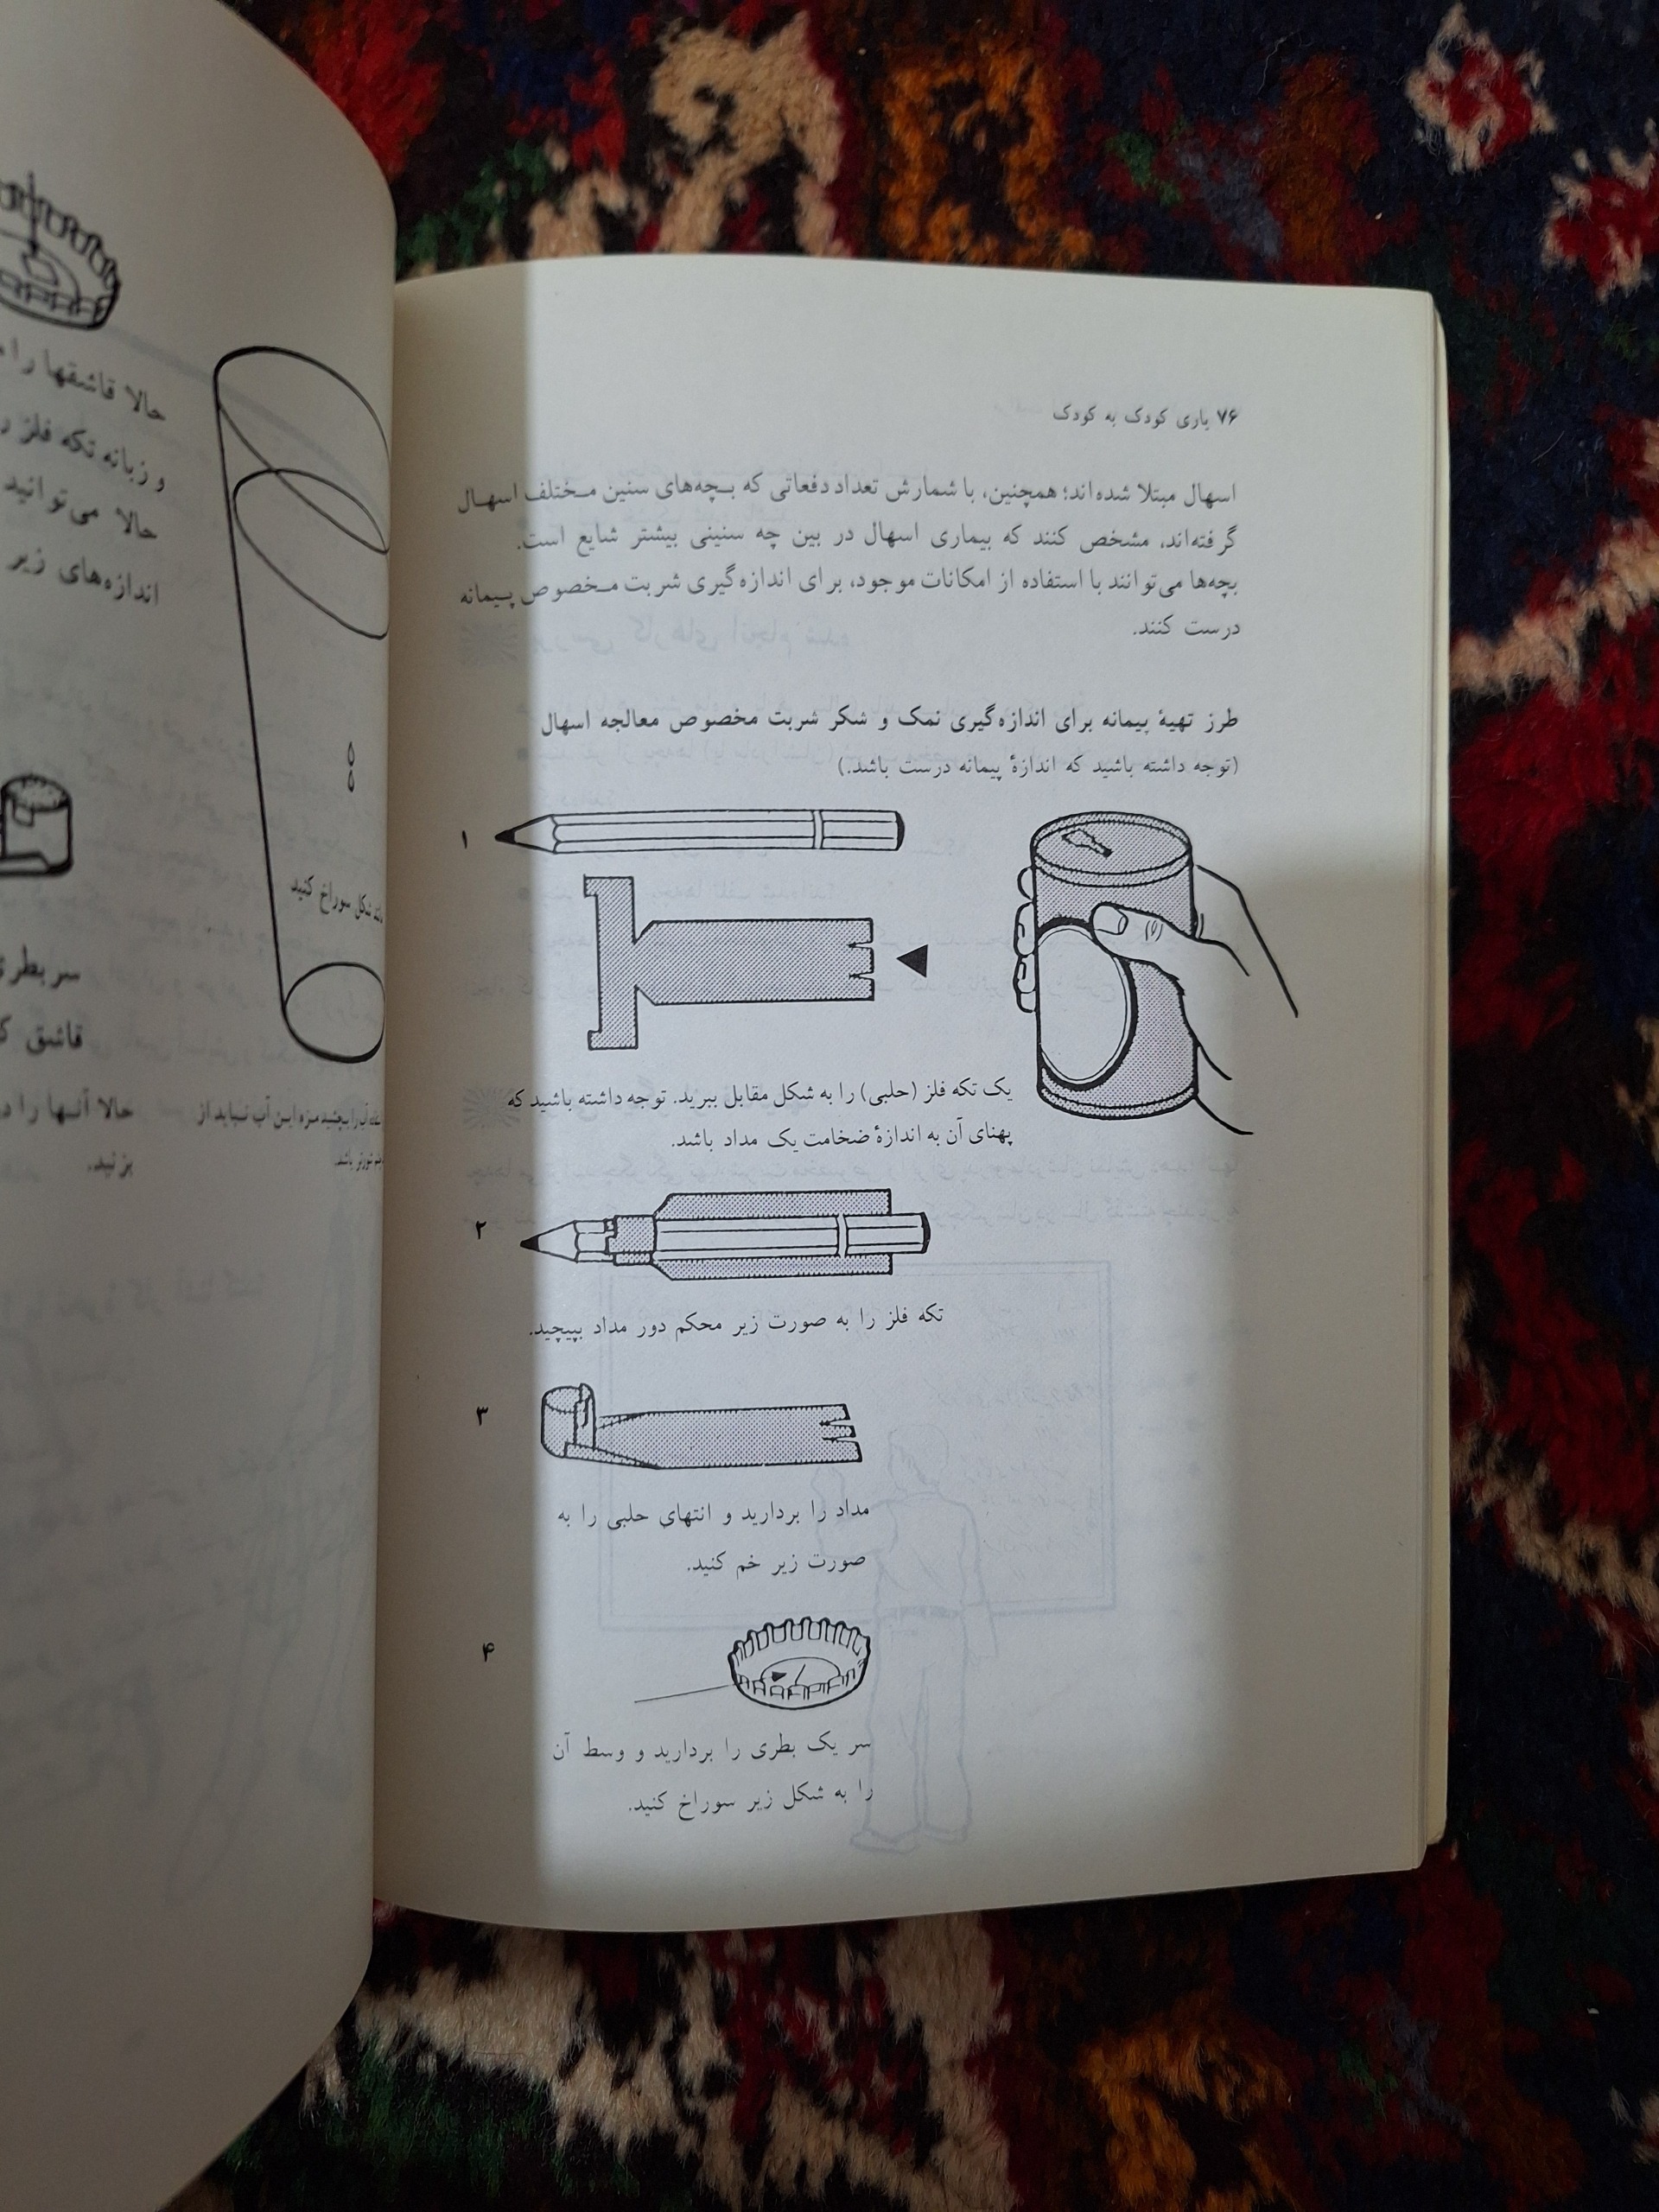 ۷۶ یاری کودک به کودک
اسهال مبتلا شده‌اند؛ همچنین، با شمارش تعداد دفعاتی که بچه‌های سنین مختلف اسهال
گرفته‌اند، مشخص کنند که بیماری اسهال در بین چه سنینی بیشتر شایع است.
بچه‌ها می‌توانند با استفاده از امکانات موجود، برای اندازه‌گیری شربت مخصوص پیمانه
درست کنند.
طرز تهیهٔ پیمانه برای اندازه‌گیری نمک و شکر شربت مخصوص معالجه اسهال
(توجه داشته باشید که اندازهٔ پیمانه درست باشد.)
۱
یک تکه فلز (حلبی) را به شکل مقابل ببرید. توجه داشته باشید که
پهنای آن به اندازهٔ ضخامت یک مداد باشد.
۲
تکه فلز را به صورت زیر محکم دور مداد بپیچید.
۳
مداد را بردارید و انتهای حلبی را به
صورت زیر خم کنید.
۴
سر یک بطری را بردارید و وسط آن
را به شکل زیر سوراخ کنید.
حالا قاشقها را
و زبانه تکه فلز
حالا می‌توانید
اندازه‌های زیر
شکل سوراخ کنید
سر بطری
قاشق
حالا آنها را
بزنید.
را بچشید مزه این آب نباید از
شورتر باشد.